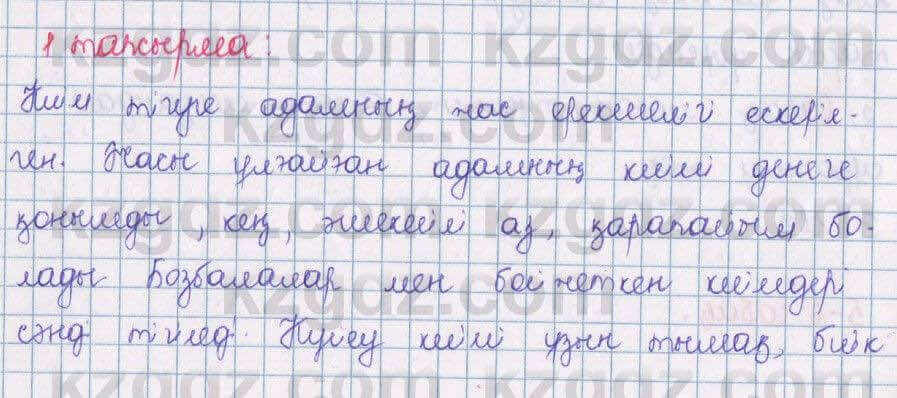 1 тапсырма:
Киім тігуге адамның жас ерекшелігі ескеріл-
ген. Жасы ұлғайған адамның киімі денеге
қонымды, кең, әшекейі аз, қарапайым бо-
лады Бозбалалар мен бойжеткен киімдері
сәнді тігілед. Күйеу киімі ұзын тымақ, биік
kzgdz.com